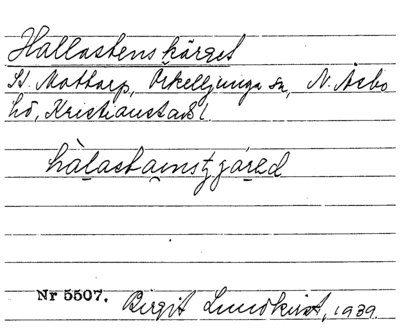 Hallastenskärret
St. Mattarp, Örkelljunga sn, N. Åsbo
hd, Kristianstads l.
hàlastainstjárəd
Nr 5507. Birgit Lundkvist, 1939.